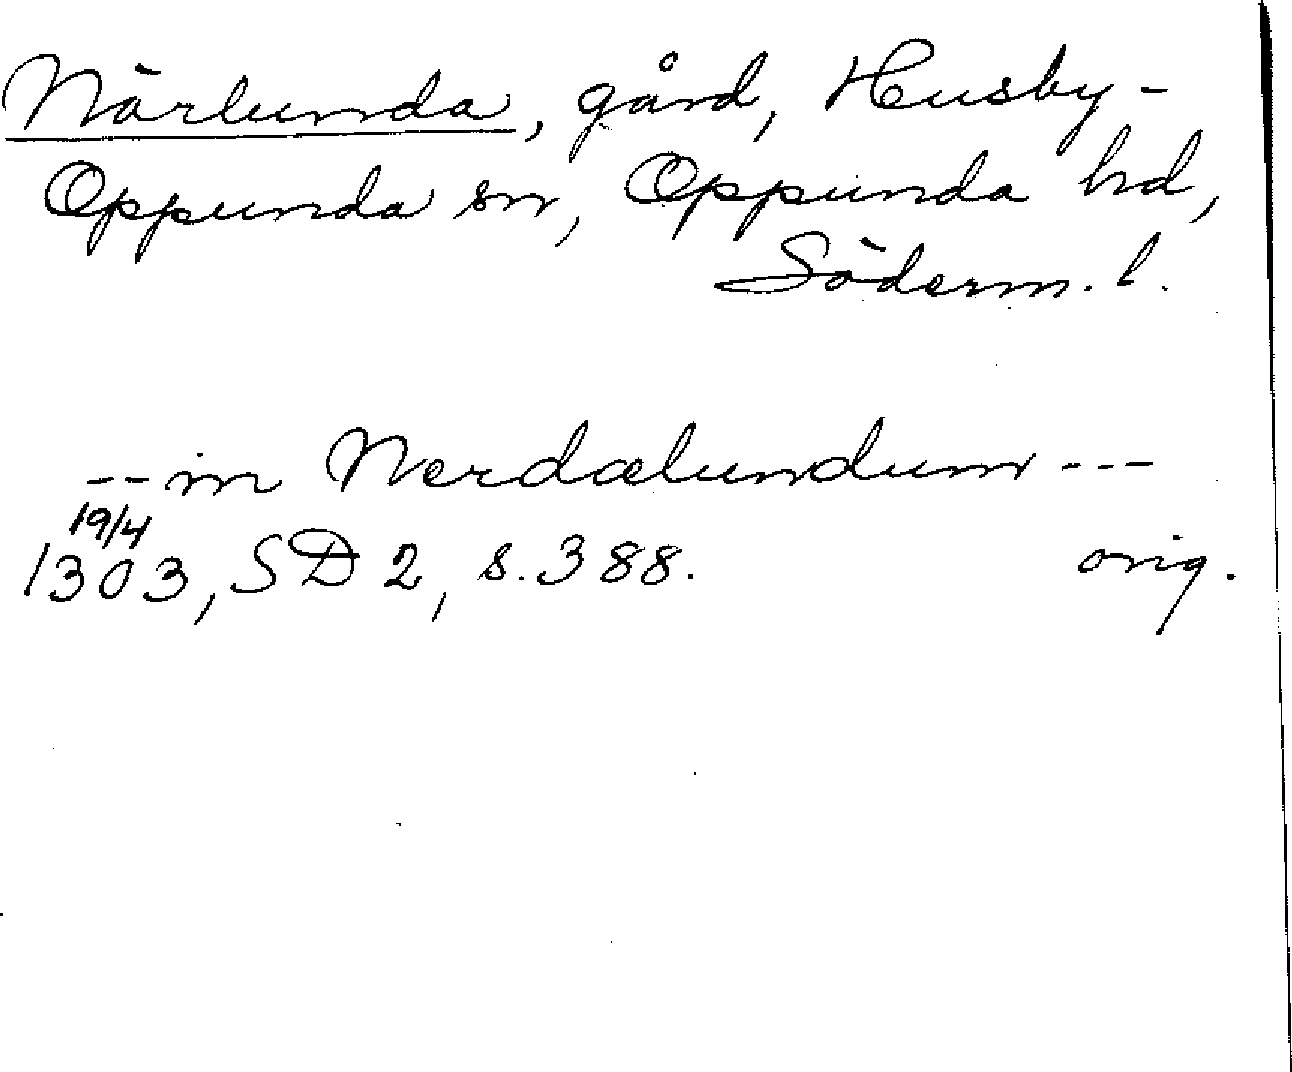 Närlunda, gård, Husby-
Oppunda sn, Oppunda hd,
Söderm. l.
-- in Nerdælundum ---
19/4
1303, SD 2, s. 388. orig.